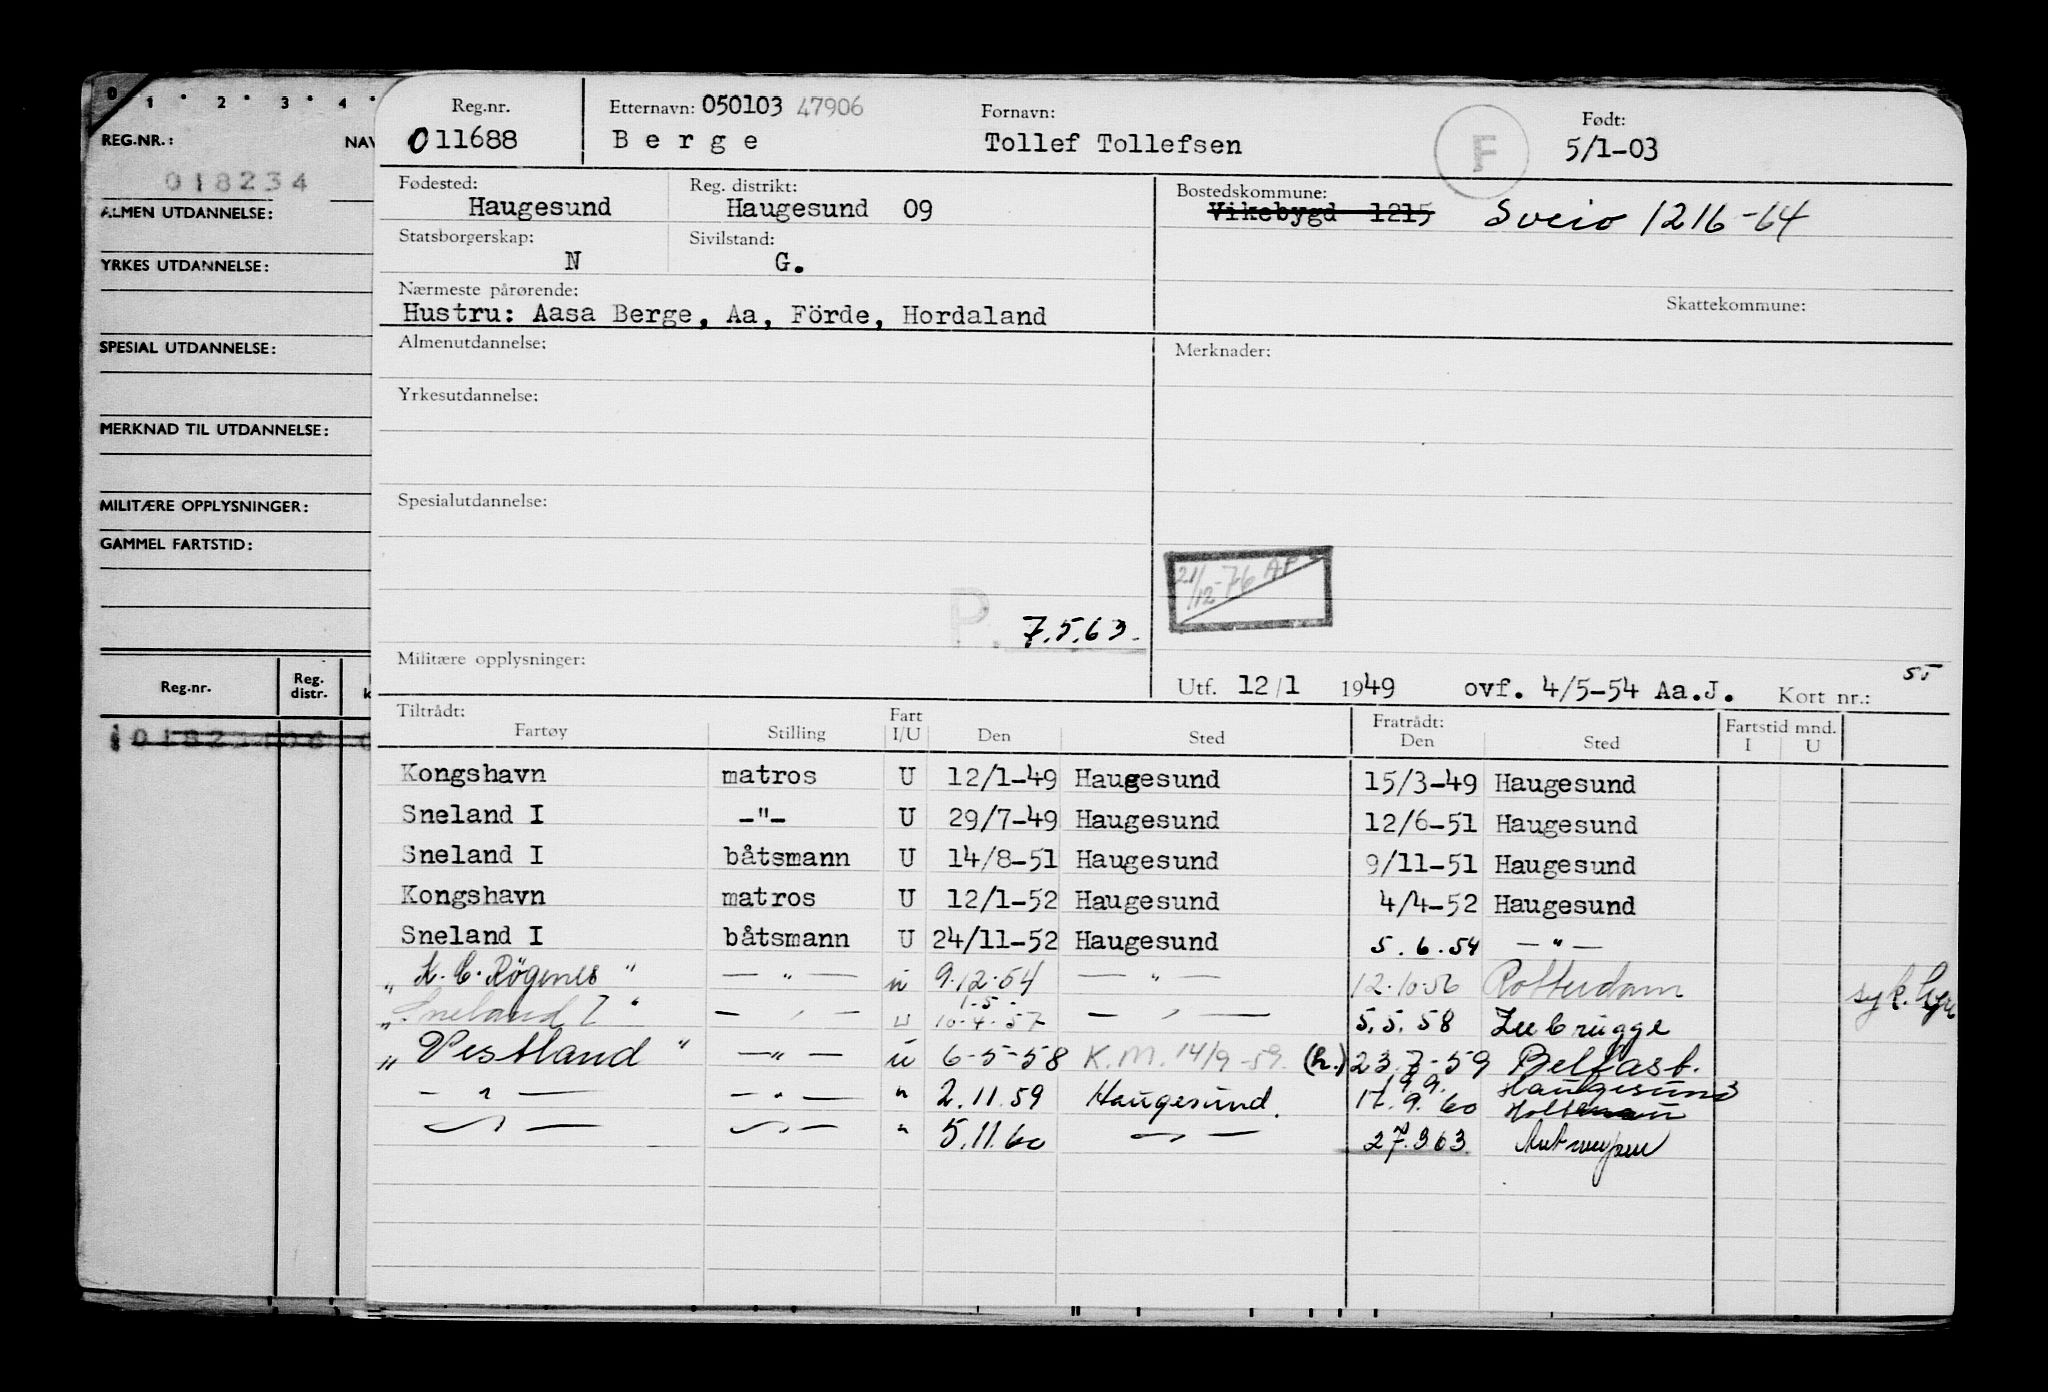 0 1 2 3 4
REG.NR.: NAV
018234
ALMEN UTDANNELSE:
YRKES UTDANNELSE:
SPESIAL UTDANNELSE:
MERKNAD TIL UTDANNELSE:
MILITÆRE OPPLYSNINGER:
GAMMEL FARTSTID:
Reg.nr. Reg. distr. k
Reg.nr. Etternavn: 050103 47906 Fornavn: Født:
011688 Berge Tollef Tollefsen F 5/1-03
Fødested: Reg. distrikt: Bostedskommune:
Haugesund Haugesund 09 Vikebygd 1215 Sveio 1216-64
Statsborgerskap: Sivilstand:
N G.
Nærmeste pårørende: Skattekommune:
Hustru: Aasa Berge, Aa, Förde, Hordaland
Almenutdannelse: Merknader:
Yrkesutdannelse:
Spesialutdannelse:
21/12-76 AF
P. 7.5.63.
Militære opplysninger:
Utf. 12/1 1949 ovf. 4/5-54 Aa.J. Kort nr.: 55
Tiltrådt: Fart Fratrådt: Fartstid mnd.
Fartøy Stilling I/U Den Sted Den Sted I U
Kongshavn matros U 12/1-49 Haugesund 15/3-49 Haugesund
Sneland I -"- U 29/7-49 Haugesund 12/6-51 Haugesund
Sneland I båtsmann U 14/8-51 Haugesund 9/11-51 Haugesund
Kongshavn matros U 12/1-52 Haugesund 4/4-52 Haugesund
Sneland I båtsmann U 24/11-52 Haugesund 5.6.54 — " —
„ K. C. Rögenes " — " — u 9.12.54 — " — 12.10.56 Rotterdam syk.
1.5.
„ Sneland I " — " — u 10.4.57 — " — 5.5.58 Zeebrügge
„ Vestland " — " — u 6-5-58 K.M. 14/9-59. (h.) 23.7-59 Belfast.
19.9. Haugesund
— " — — " — " 2.11.59 Haugesund. 17.9.60
— " — — " — " 5.11.60 — " — 27.3 63. Antwerpen